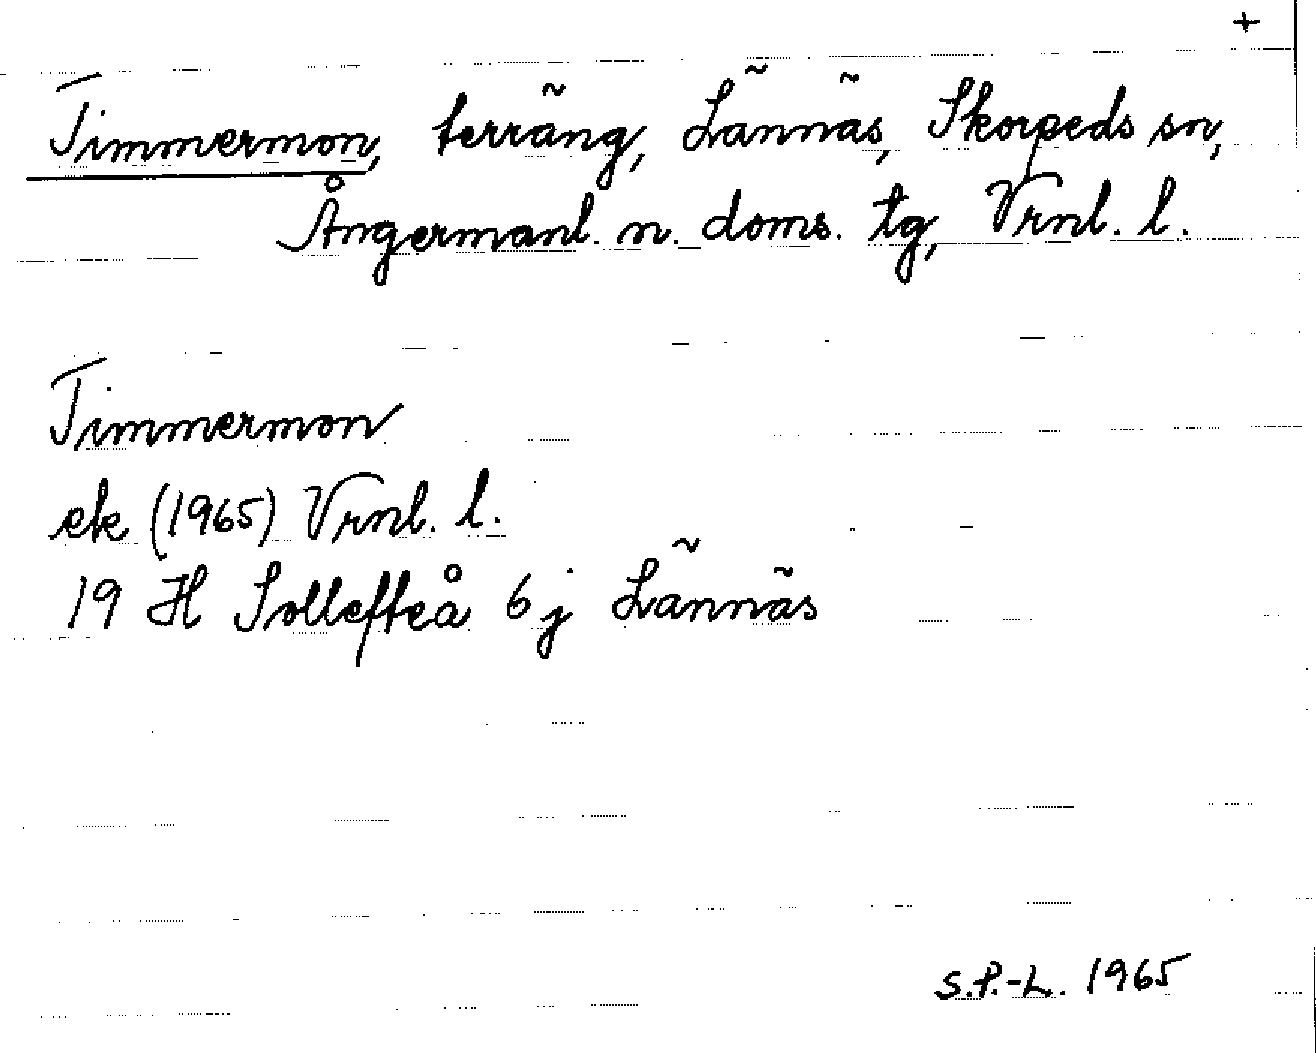 +
Timmermon, terräng, Lännäs, Skorpeds sn,
Ångermanl. n. doms. tg, Vrnl. l.
Timmermon
ek (1965) Vrnl. l.
19 H Sollefteå 6 j Lännäs
S.P.-L. 1965